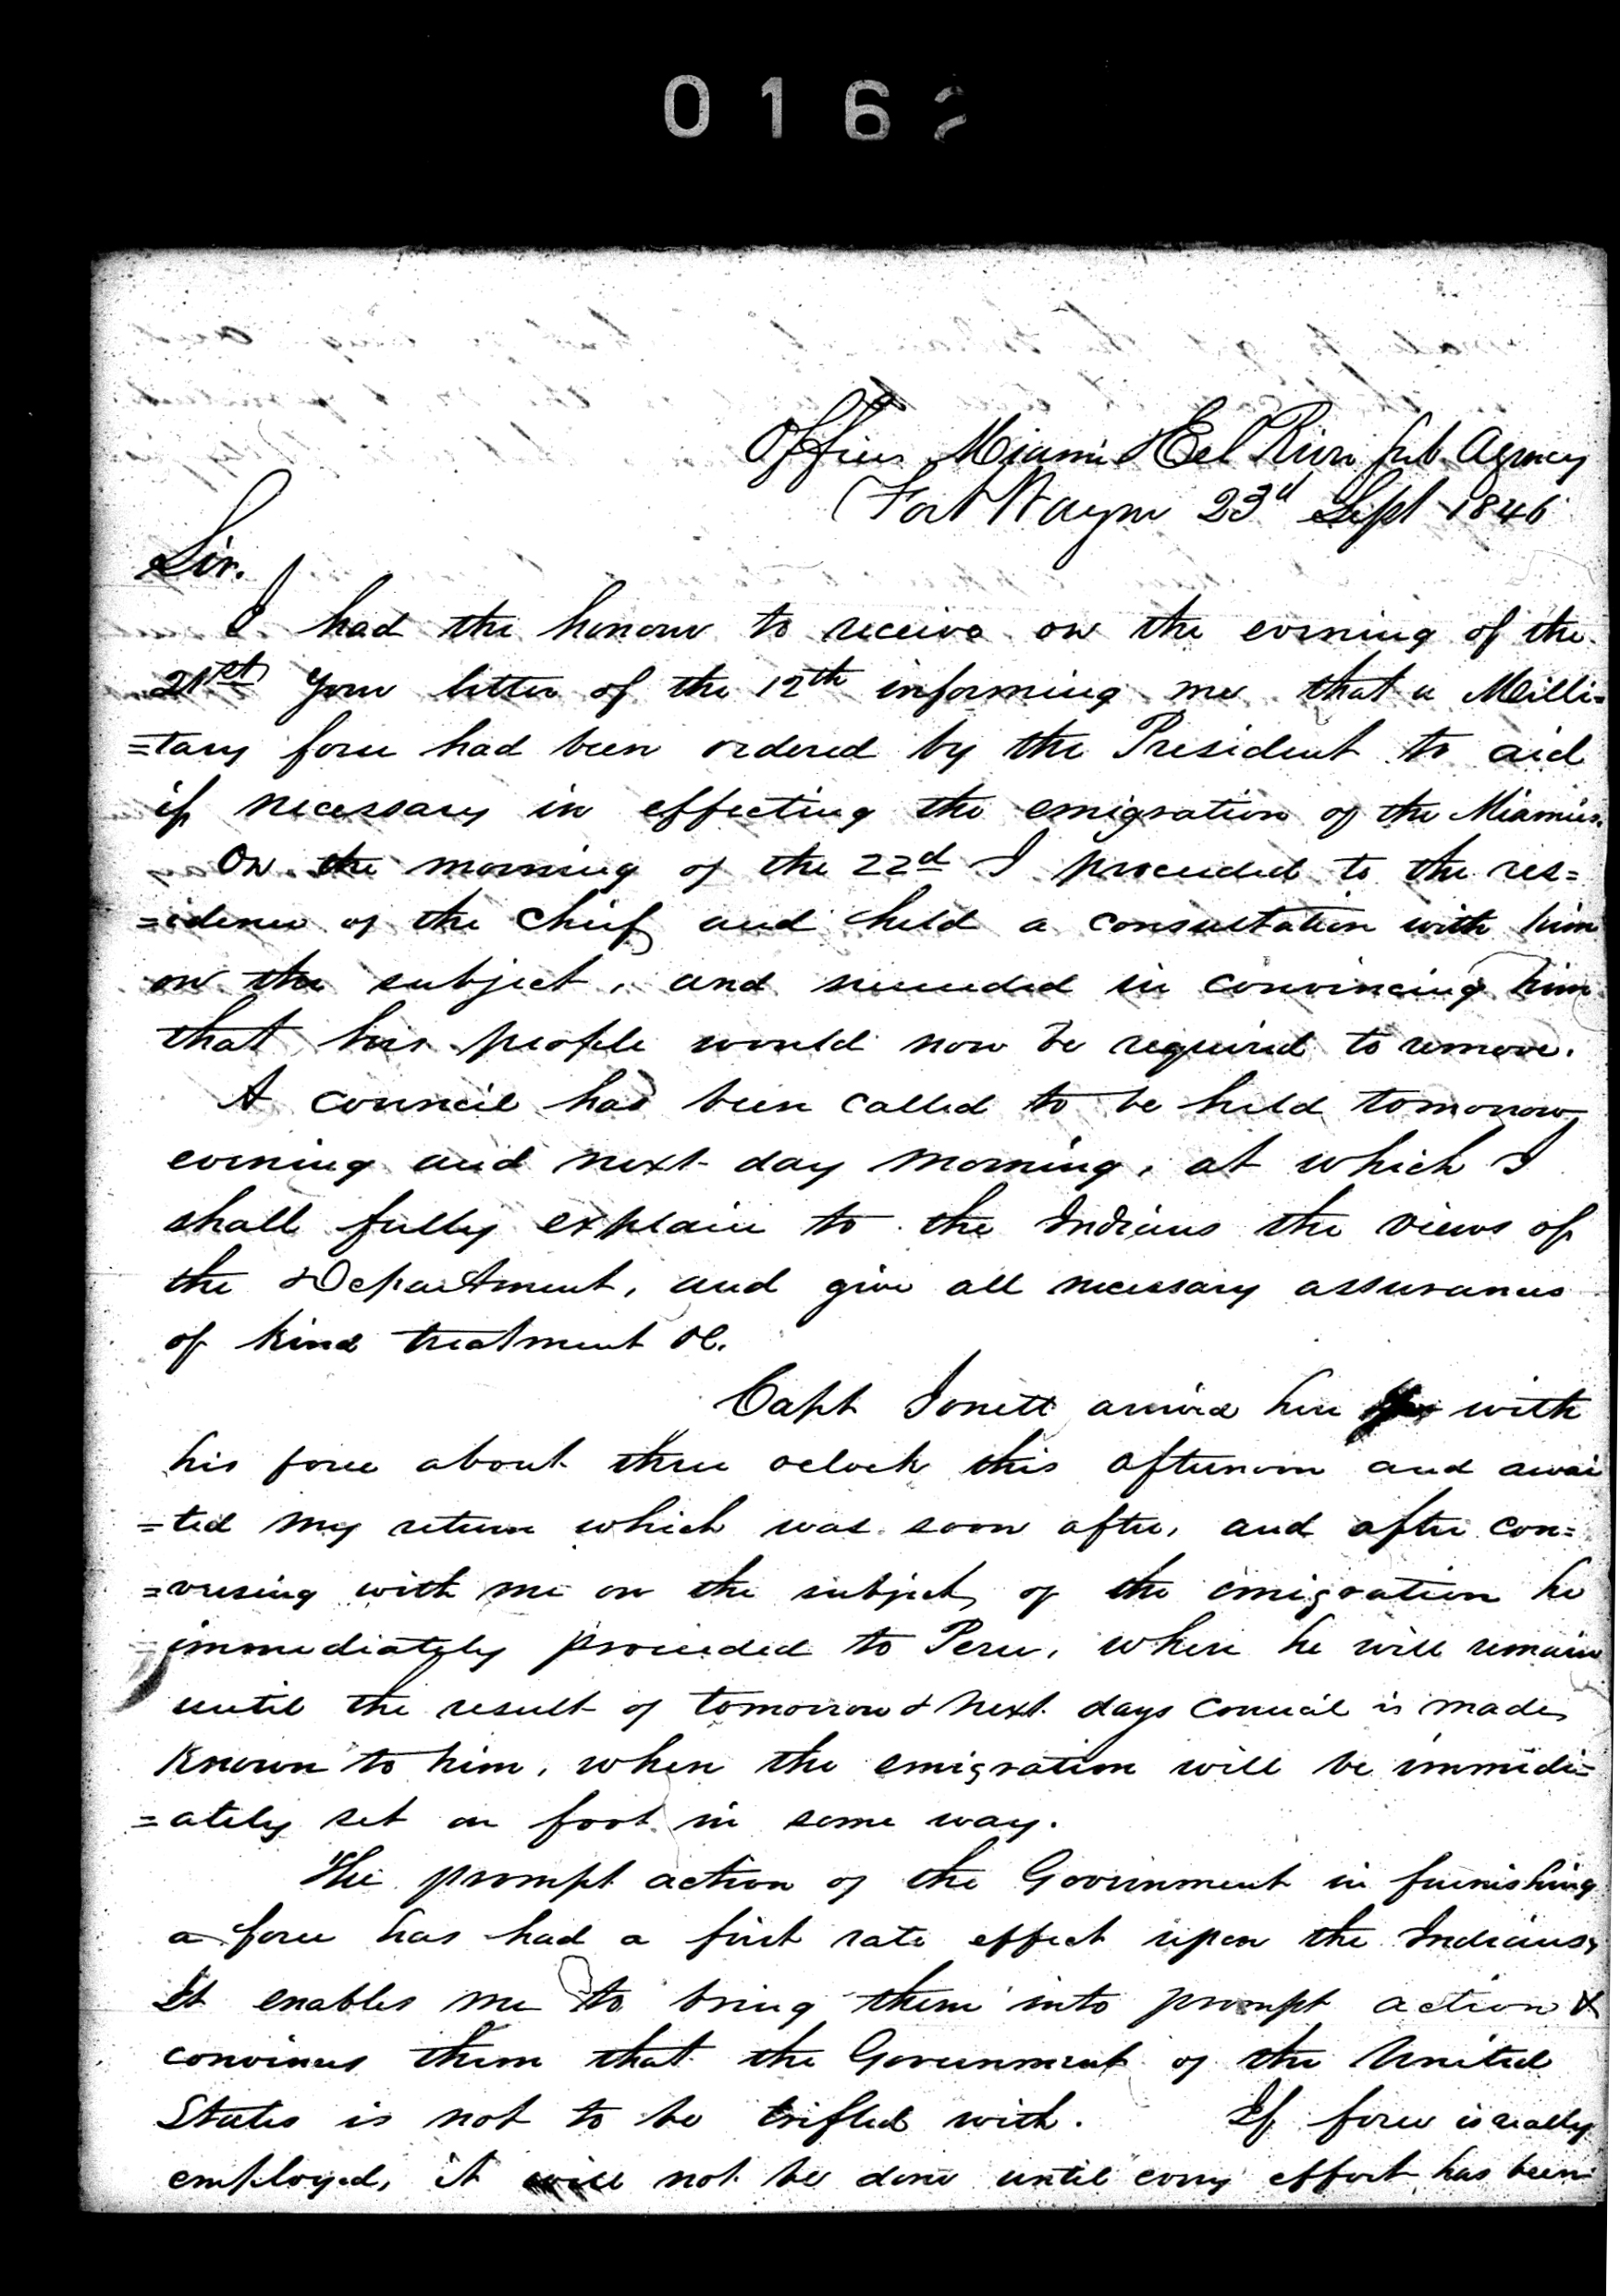 0162
Office Miami & Eel River Sub Agency
Fort Wayne 23d Sept 1846
Sir.
I had the honour to receive on the evening of the
21st your letter of the 12th informing me that a Milli=
=tary force had been ordered by the President to aid
if necessary in effecting the emigration of the Miamies.
On the morning of the 22d I proceeded to the res=
=idence of the Chief and held a consultation with him
on the subject, and succeeded in convincing him
that his people would now be required to remove.
A council has been called to be held tomorrow
evening and next day morning, at which I
shall fully explain to the Indians the views of
the Department, and give all necessary assurances
of kind treatment &c.
Capt Jouett arrived here with
his force about three oclock this afternoon and awai
=ted my return which was soon after, and after con=
=versing with me on the subject of the emigration he
immediately proceeded to Peru, where he will remain
until the result of tomorrow & next days council is made
known to him, when the emigration will be immedi=
=ately set on foot in some way.
The prompt action of the Government in furnishing
a force has had a first rate effect upon the Indians,
It enables me to bring them into prompt action &
convinces them that the Government of the United
States is not to be trifled with. If force is really
employed, it will not be done until every effort has been